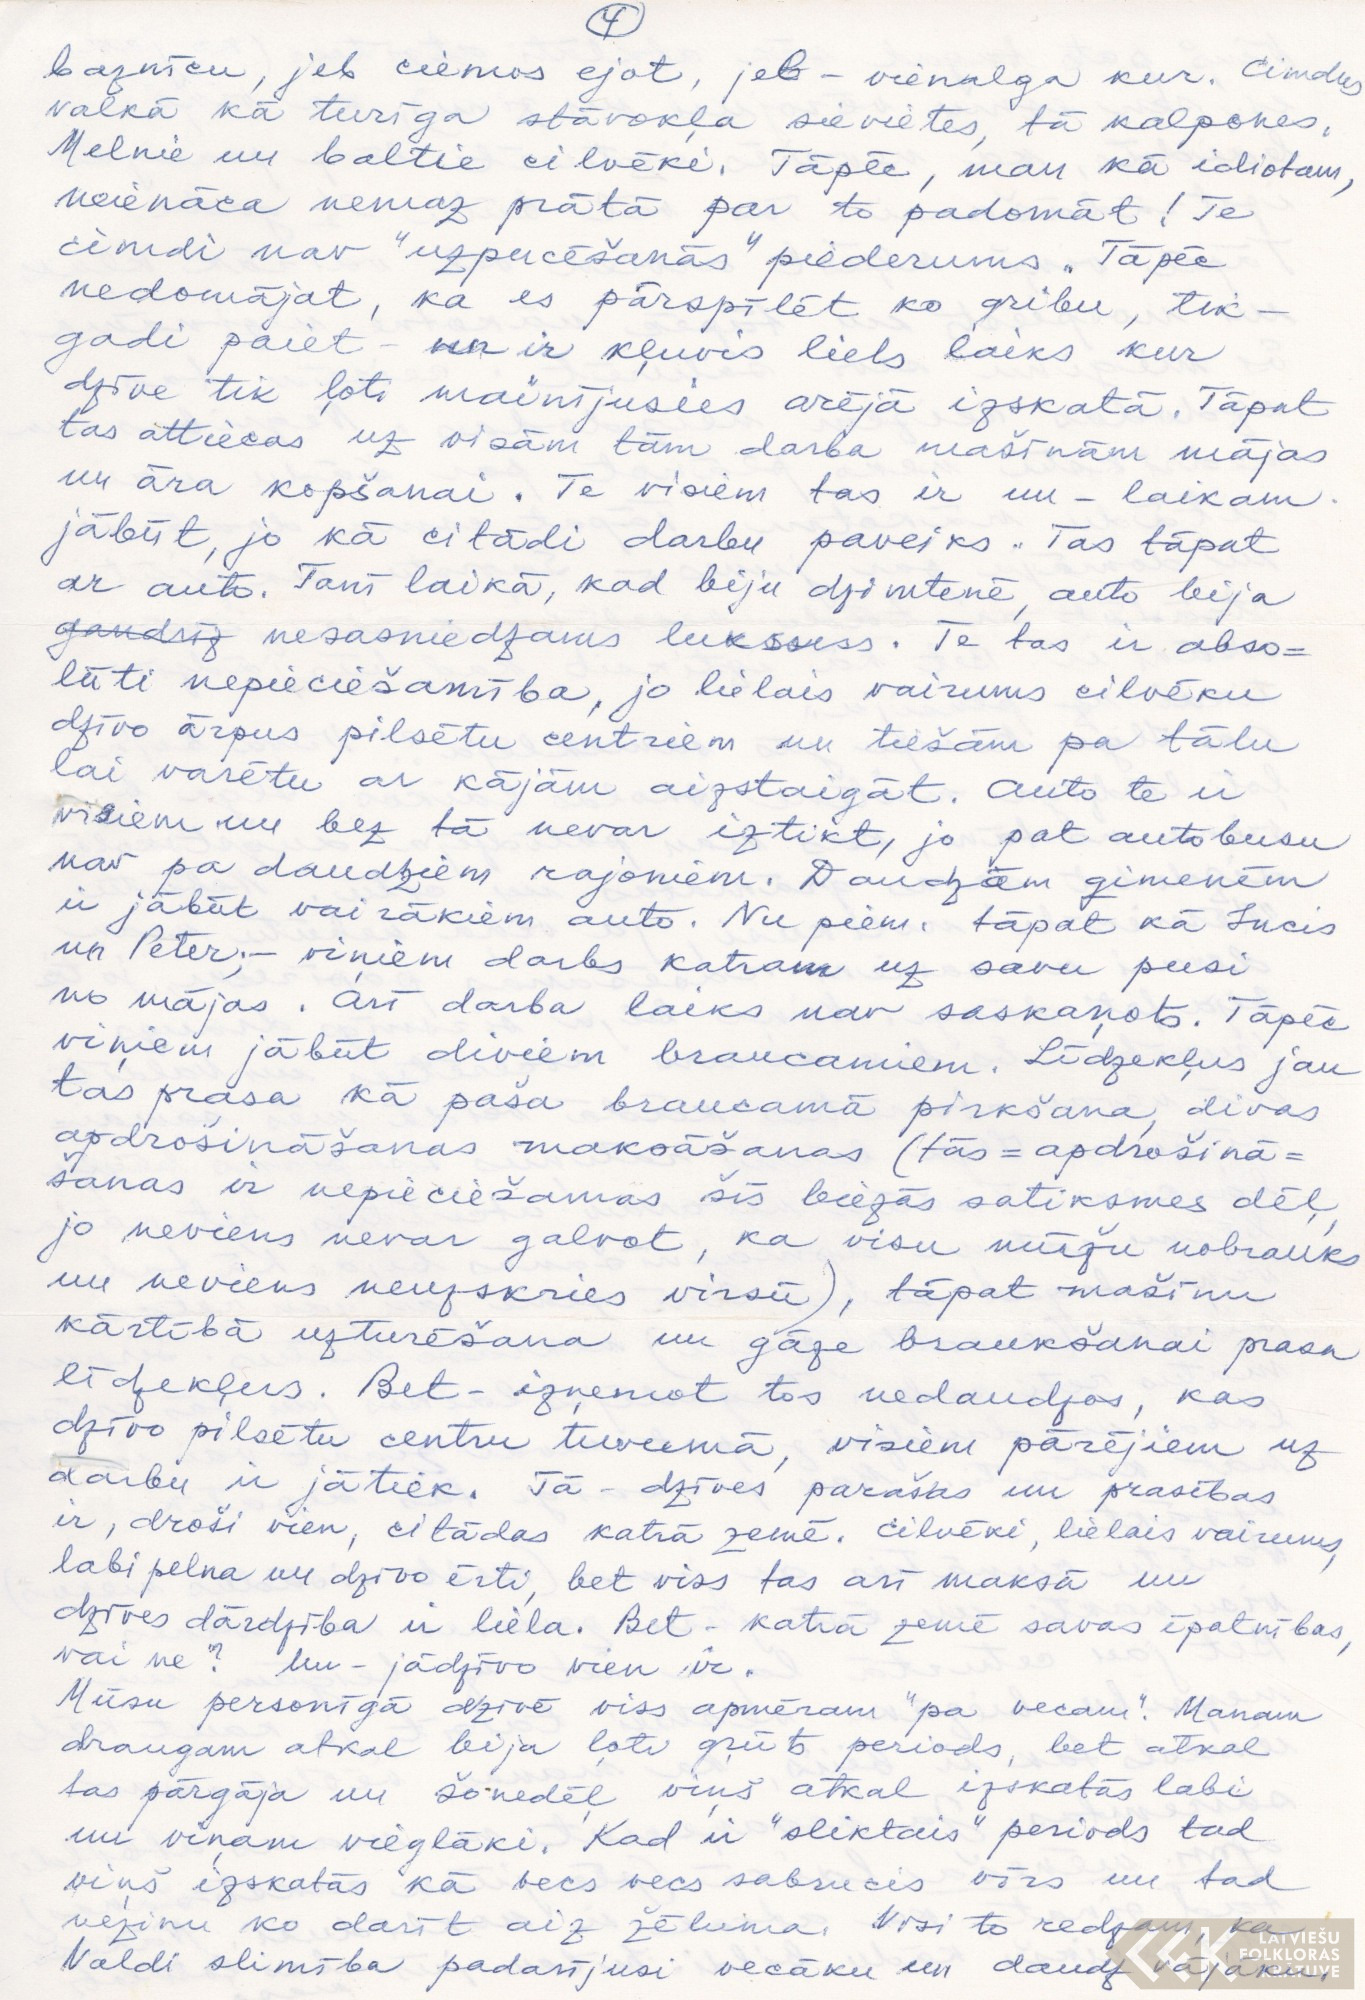 4
baznīcu, jeb ciemos ejot, jeb – vienalga kur. Cimdus
valkā kā turīga stāvokļa sievietes, tā kalpones.
Melnie un baltie cilvēki. Tāpēc, man kā idiotam,
neienāca nemaz prātā par to padomāt! Te
cimdi nav "uzpucēšanās" piederums. Tāpēc
nedomājat, ka es pārspīlēt ko gribu, tik –
gadi paiet – un ir kļuvis liels laiks kur
dzīve tik ļoti mainījusies ārējā izskatā. Tāpat
tas attiecas uz visām tām darba mašīnām mājas
un āra kopšanai. Te visiem tas ir un – laikam
jābūt, jo kā citādi darbu paveiks. Tas tāpat
ar auto. Tanī laikā, kad biju dzimtenē, auto bija
gandrīz nesasniedzams luksuss. Te tas ir abso=
lūti nepieciešamība, jo lielais vairums cilvēku
dzīvo ārpus pilsētu centriem un tiešām pa tālu
lai varētu ar kājām aizstaigāt. Auto te ir
visiem un bez tā nevar iztikt, jo pat autobusu
nav pa daudziem rajoniem. Daudzām ģimenēm
ir jābūt vairākiem auto. Nu piem. tāpat kā Incis
un Peter; – viņiem darbs katram uz savu pusi
no mājas. Arī darba laiks nav saskaņots. Tāpēc
viņiem jābūt diviem braucamiem. Līdzekļus jau
tas prasa kā paša braucamā pirkšana, divas
apdrošināšanas maksāšanas (tās = apdrošinā=
šanas ir nepieciešamas šīs biezās satiksmes dēļ,
jo neviens nevar galvot, ka visu mūžu nobrauks
un neviens neuzskries virsū), tāpat mašīnu
kārtībā uzturēšana un gāze braukšanai prasa
līdzekļus. Bet – izņemot tos nedaudzos, kas
dzīvo pilsētu centru tuvumā, visiem pārējiem uz
darbu ir jātiek. Tā – dzīves parašas un prasības
ir, droši vien, citādas katrā zemē. Cilvēki, lielais vairums,
labi pelna un dzīvo ērti, bet viss tas arī maksā un
dzīves dārdzība ir liela. Bet – katrā zemē savas īpatnības,
vai ne? Un – jādzīvo vien ir.
Mūsu personīgā dzīvē viss apmēram "pa vecam". Manam
draugam atkal bija ļoti grūts periods, bet atkal
tas pārgāja un šonedēļ viņš atkal izskatās labi
un viņam vieglāki. Kad ir "sliktais" periods tad
viņš izskatās kā vecs vecs sabrucis vīrs un tad
nezinu ko darīt aiz žēluma. Visi to redzam, ka
Valdi slimība padarījusi vecāku un daudz vājāku.
LATVIEŠU
FOLKLORAS
KRĀTUVE